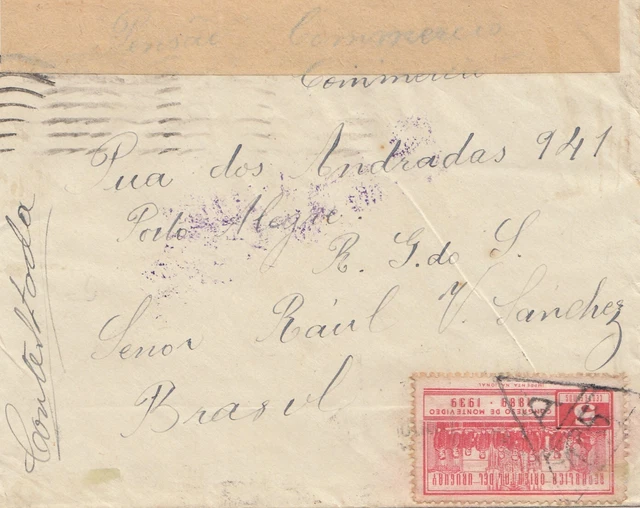 Pensão Commercio
Commercio
Rua dos Andradas 941
Porto Alegre.
R. G. do S.
Senor Raúl V. Sánchez
Brasil
Contestada
REPUBLICA ORIENTAL DEL URUGUAY
CONGRESO DE MONTEVIDEO
1889 · 1939
IMPRENTA NACIONAL